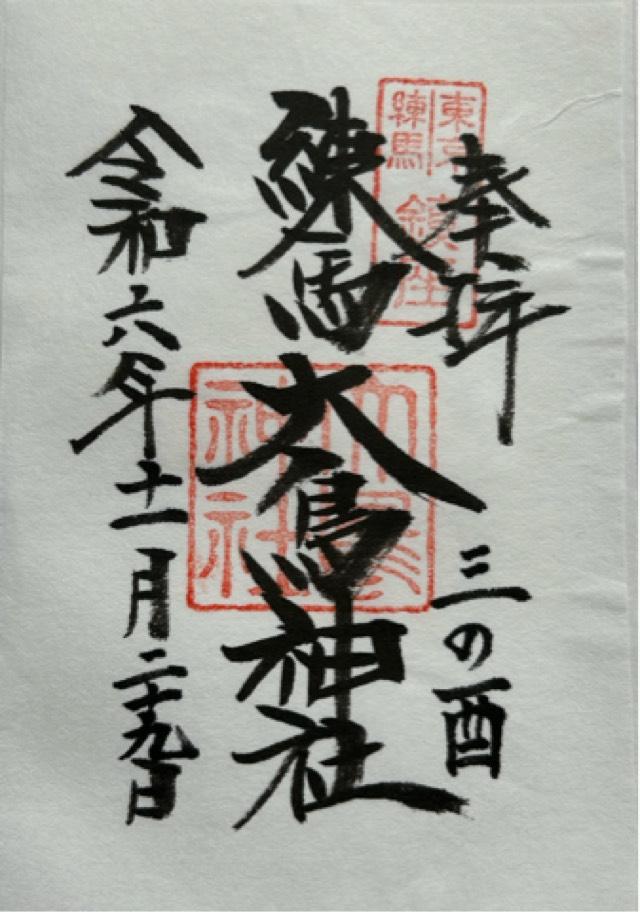 奉拝
三の酉
東京
練馬
鎮座
練馬大鳥神社
大鳥
神社
令和六年十一月二十九日